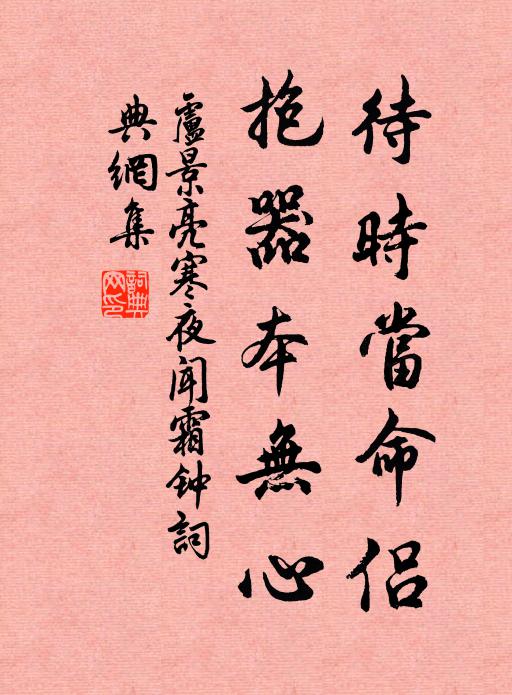 待時當命侶
抱器本無心
盧景亮寒夜聞霜钟詞
典網集
詞典
网印